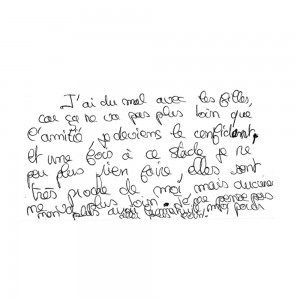 J'ai du mal avec les filles,
car ça ne va pas plus loin que
l'amitié je deviens le confident,
et une fois à ce stade je ne
peu plus rien faire, elles sont
très proche de moi, mais aucune
ne va plus loin. je ne pense pas